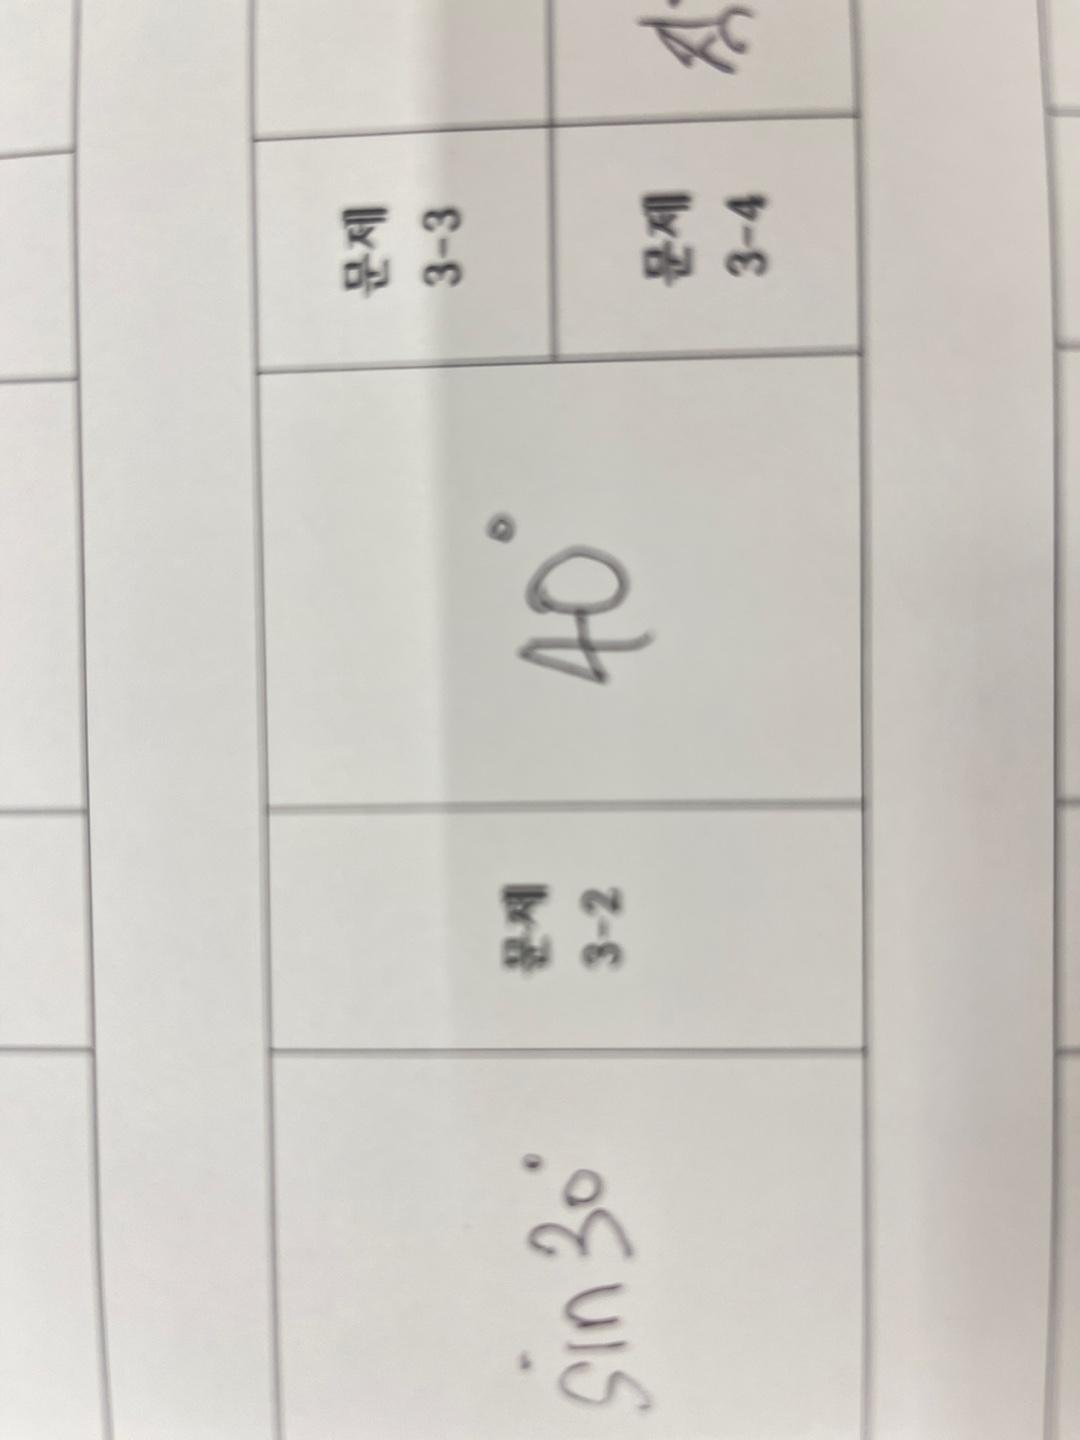 sin 30°
문제
3-2
40°
문제
3-3
문제
3-4